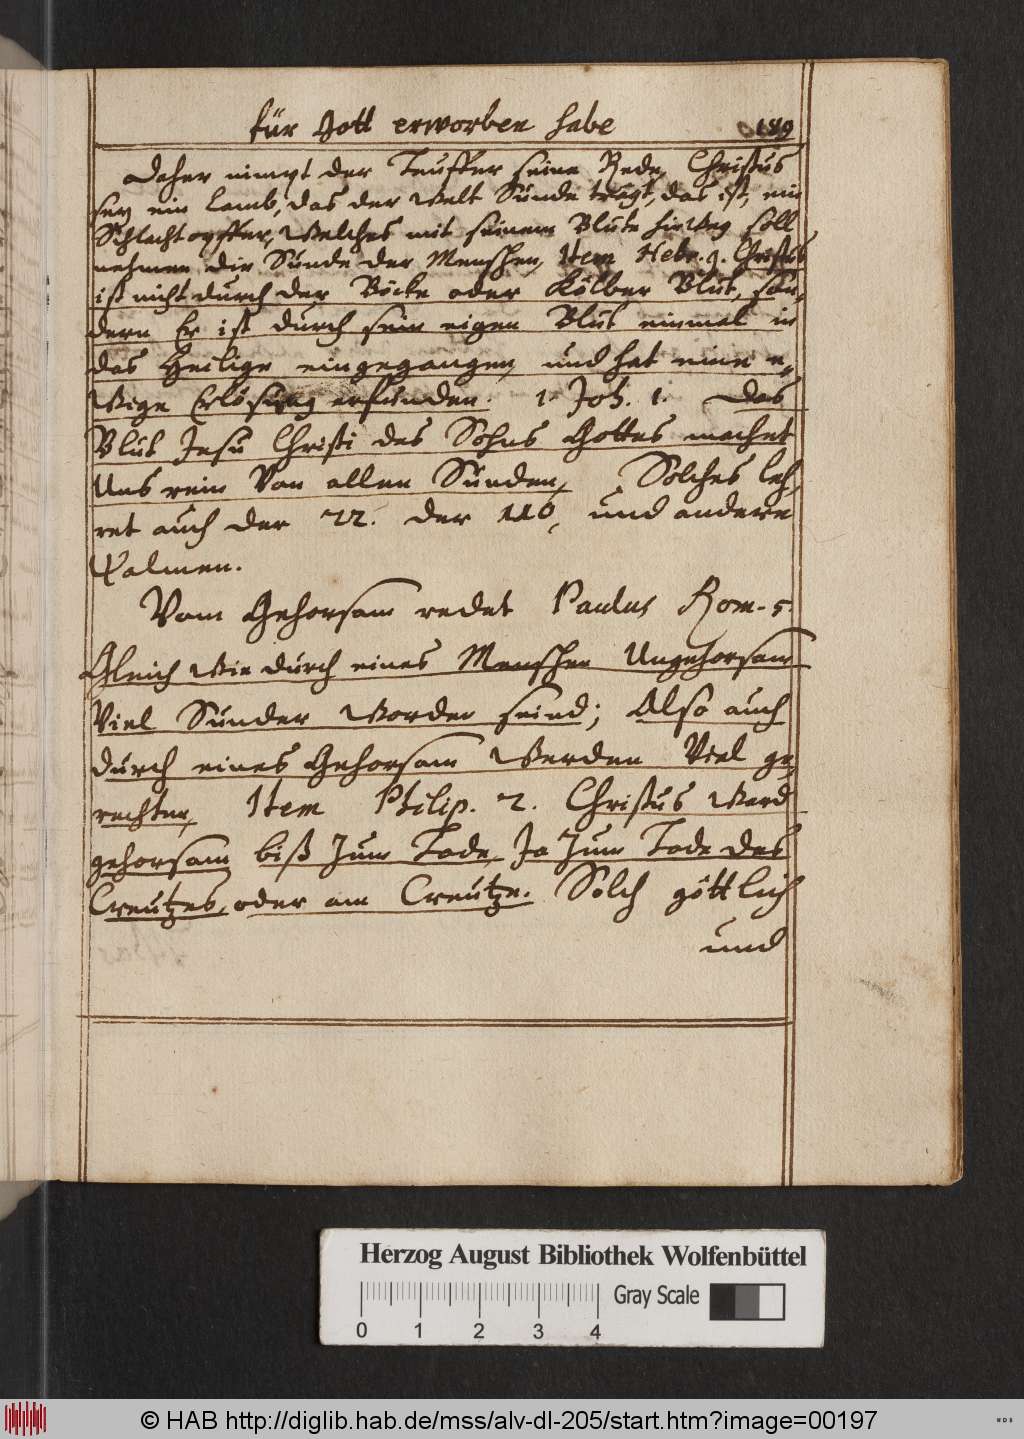 für Gott erworben habe 189
Daher nimpt der Teuffer seine Rede, Christus
sey ein Lamb, das der Welt Sünde trägt, das ist, ein
Schlachtopffer, Welches mit seinem Blute hinweg soll
nehmen die Sünde der Menschen, Item Hebr. 9. Christus
ist nicht durch der Böcke oder Kälber Blut, son,
dern Er ist durch sein eigen Blut einmal in
das Heilige eingegangen, und hat eine e,
Wige Erlösung erfunden. 1. Joh. 1. Das
Blut Jesu Christi des Sohns Gottes machet
Uns rein Von allen Sünden, Solches leh,
ret auch der 22. der 110, und andere
Psalmen.
Vom Gehorsam redet Paulus Rom. 5.
Gleich Wie durch eines Menschen Ungehorsam
Viel Sünder Worden seind; Also auch
durch eines Gehorsam Werden Viel ge,
rechter, Item Philip. 2. Christus Ward
gehorsam biß Zum Tode, Ja Zum Tode des
Creutzes, oder am Creutze. Solch göttlich
und
Herzog August Bibliothek Wolfenbüttel
Gray Scale
0 1 2 3 4
© HAB http://diglib.hab.de/mss/alv-dl-205/start.htm?image=00197